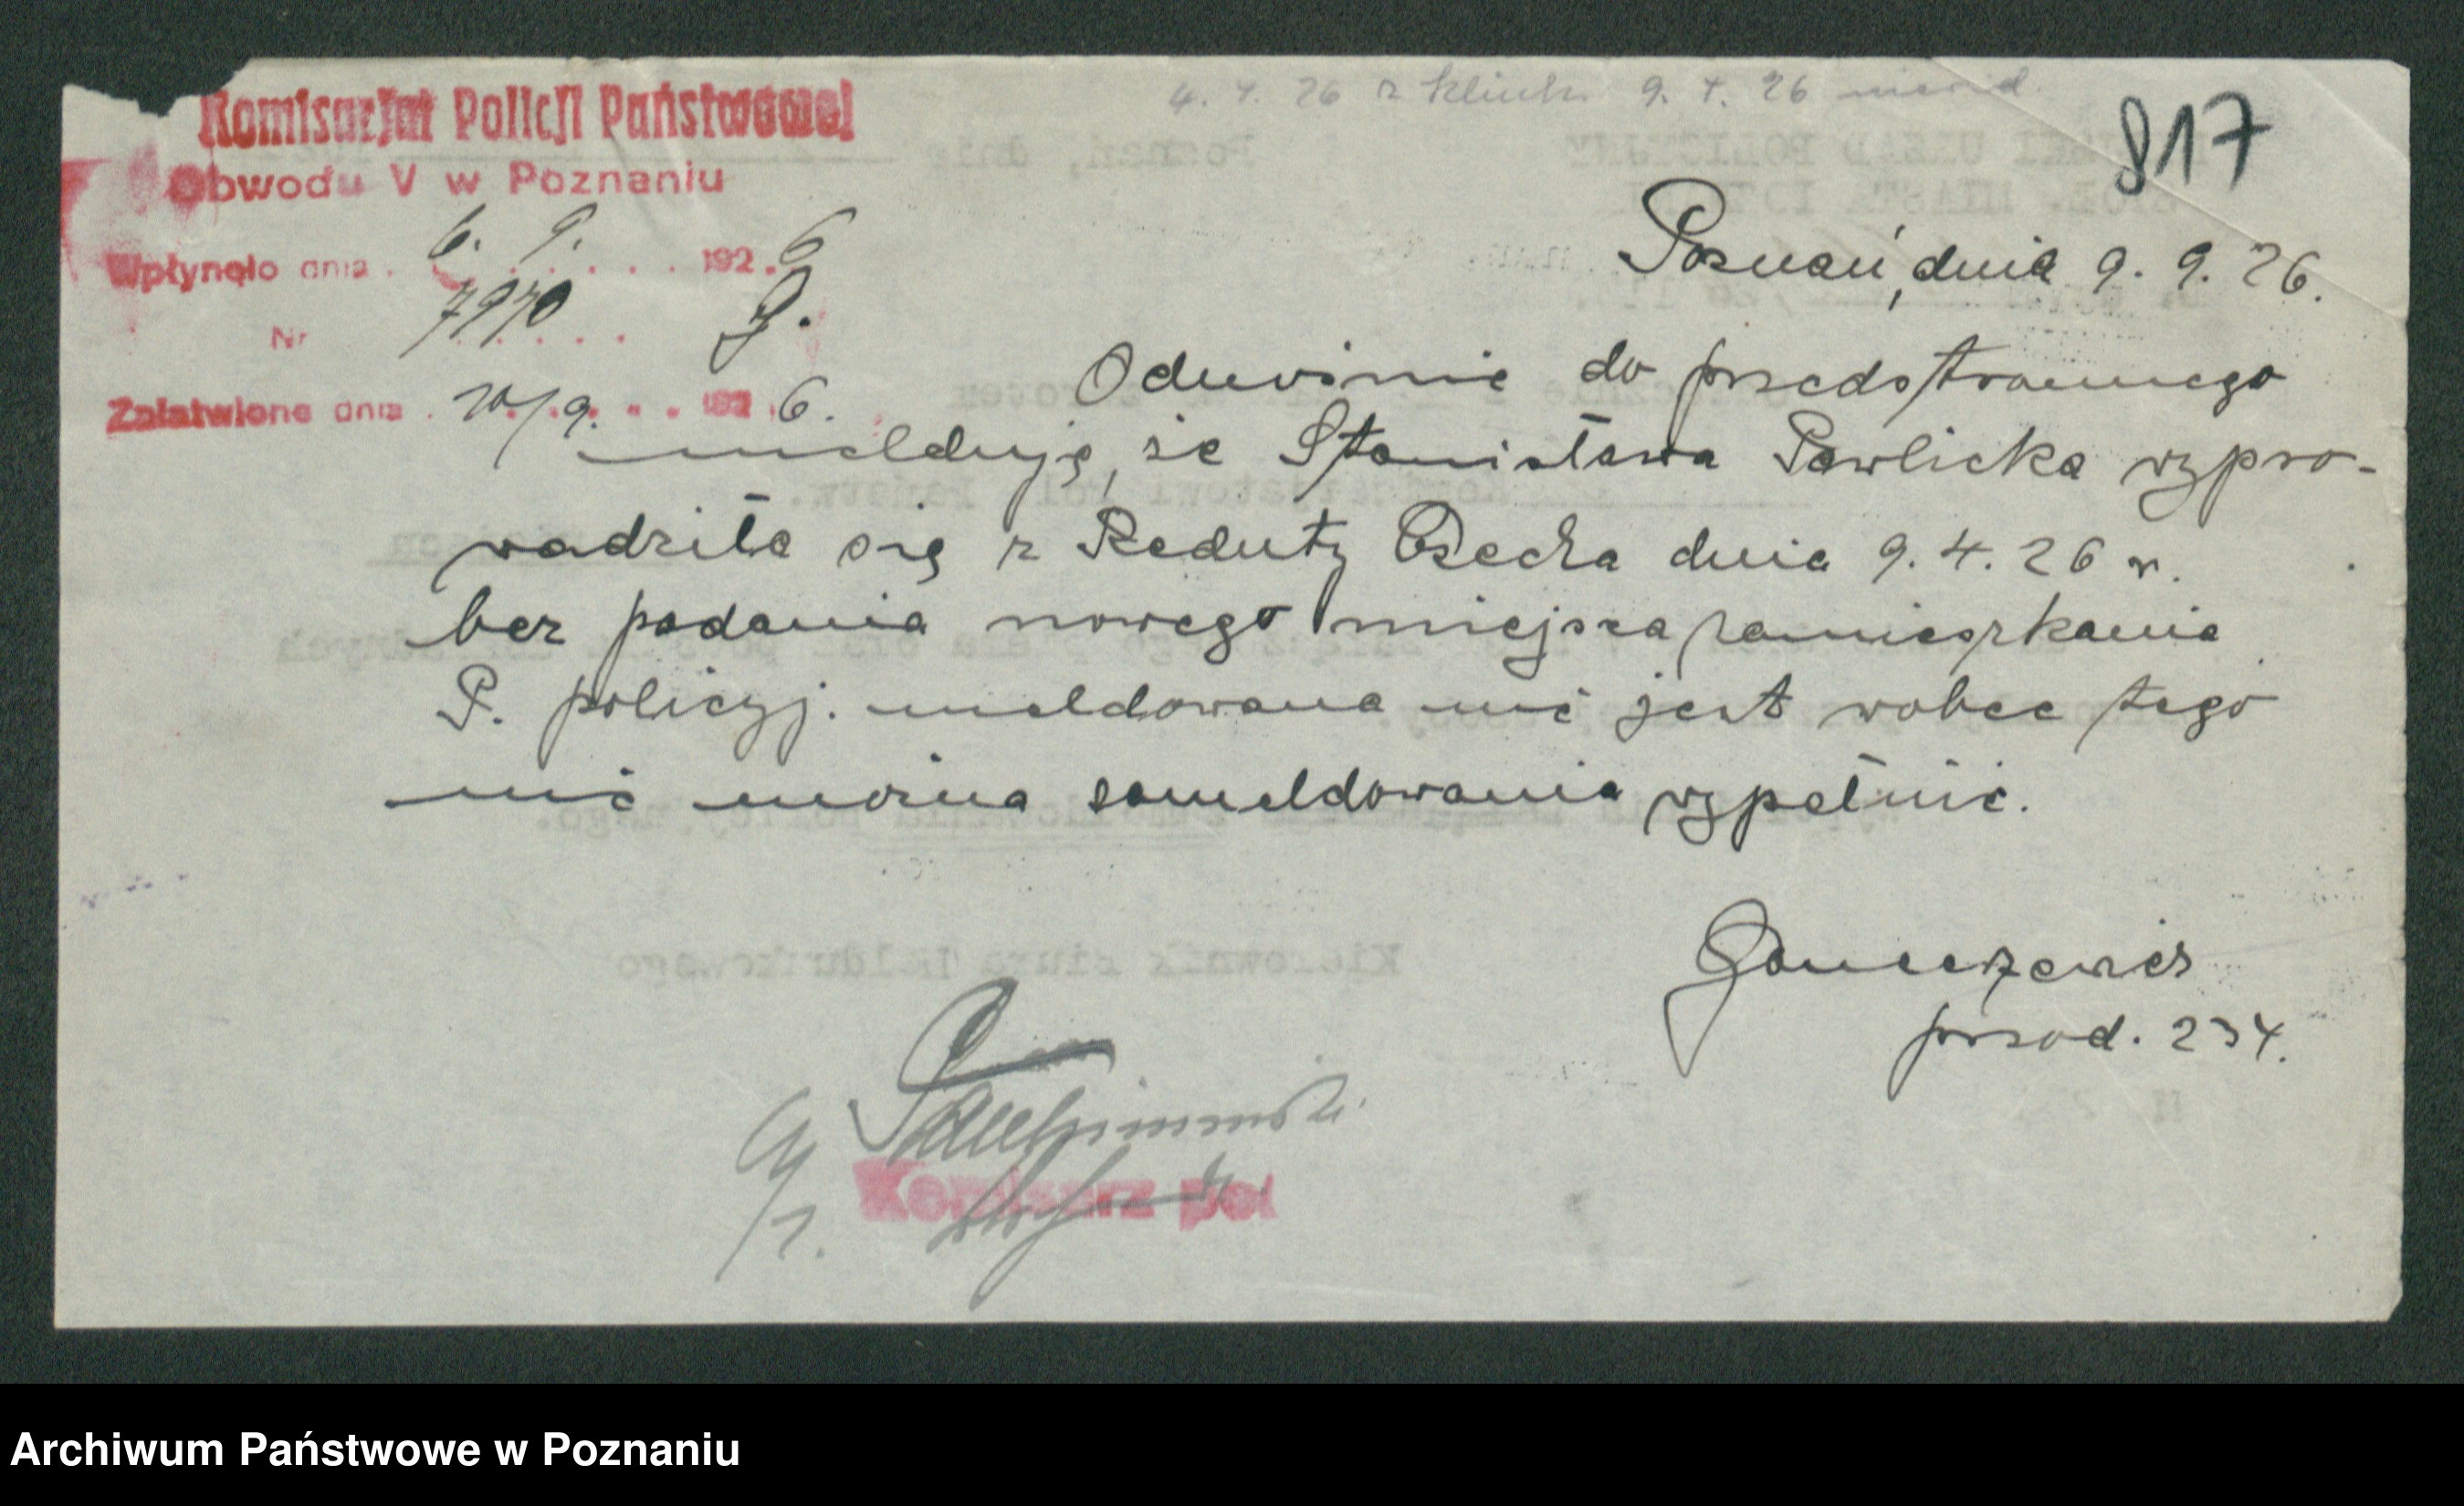 4. 4. 26 z klinik 9. 4. 26
817
Komisarjat Policji Państwowej
Obwodu V w Poznaniu
Wpłynęło dnia 6. 9. 1926
Nr 7970
Załatwiono dnia 10/9. 1926.
Poznań, dnia 9. 9. 26.
Odnośnie do przedstronnego
melduję, że Stanisława Pawlicka wypro-
wadziła się z Reduty dnia 9. 4. 26 r.
bez podania nowego miejsca zamieszkania
P. policyj. meldowana nie jest wobec tego
nie można zameldowania wypełnić.
przod. 234.
Komisarz pol
Archiwum Państwowe w Poznaniu